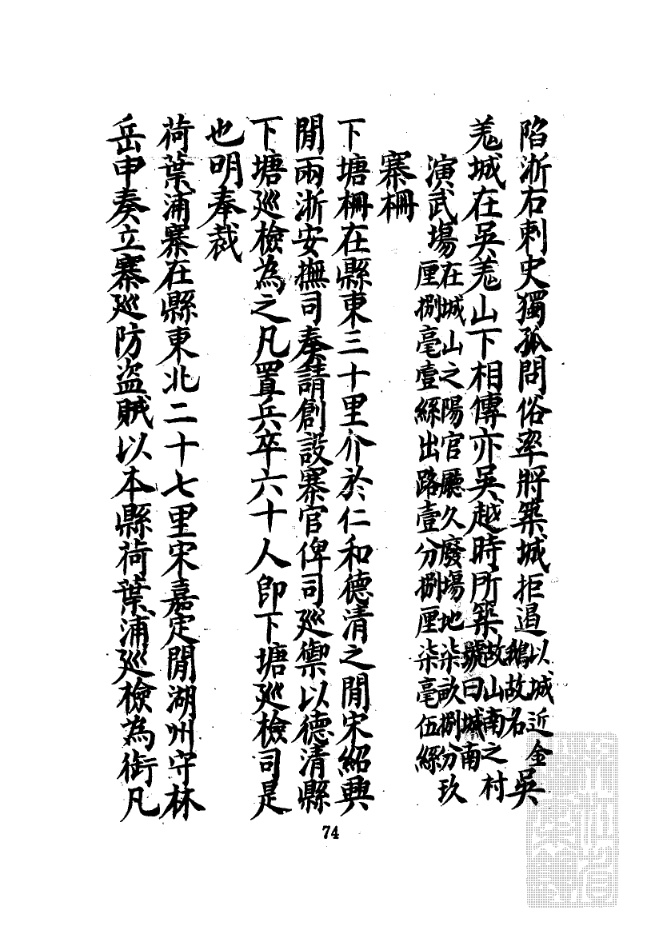 陷浙右刺史獨孤問俗率將築城拒遏以城近金鵝故名吳
羗城在吳羗山下相傳亦吳越時所築故山南之村號曰城南
演武場在城山之陽官廳久廢場地柒畝捌分玖厘捌毫壹絲出路壹分捌厘柒毫伍絲
寨柵
下塘柵在縣東三十里介於仁和德清之閒宋紹興
閒兩浙安撫司奏請創設寨官俾司廵禦以德清縣
下塘廵檢為之凡置兵卒六十人卽下塘廵檢司是
也明奉裁
荷葉浦寨在縣東北二十七里宋嘉定閒湖州守林
岳申奏立寨廵防盜賊以本縣荷葉浦廵檢為銜凡
74